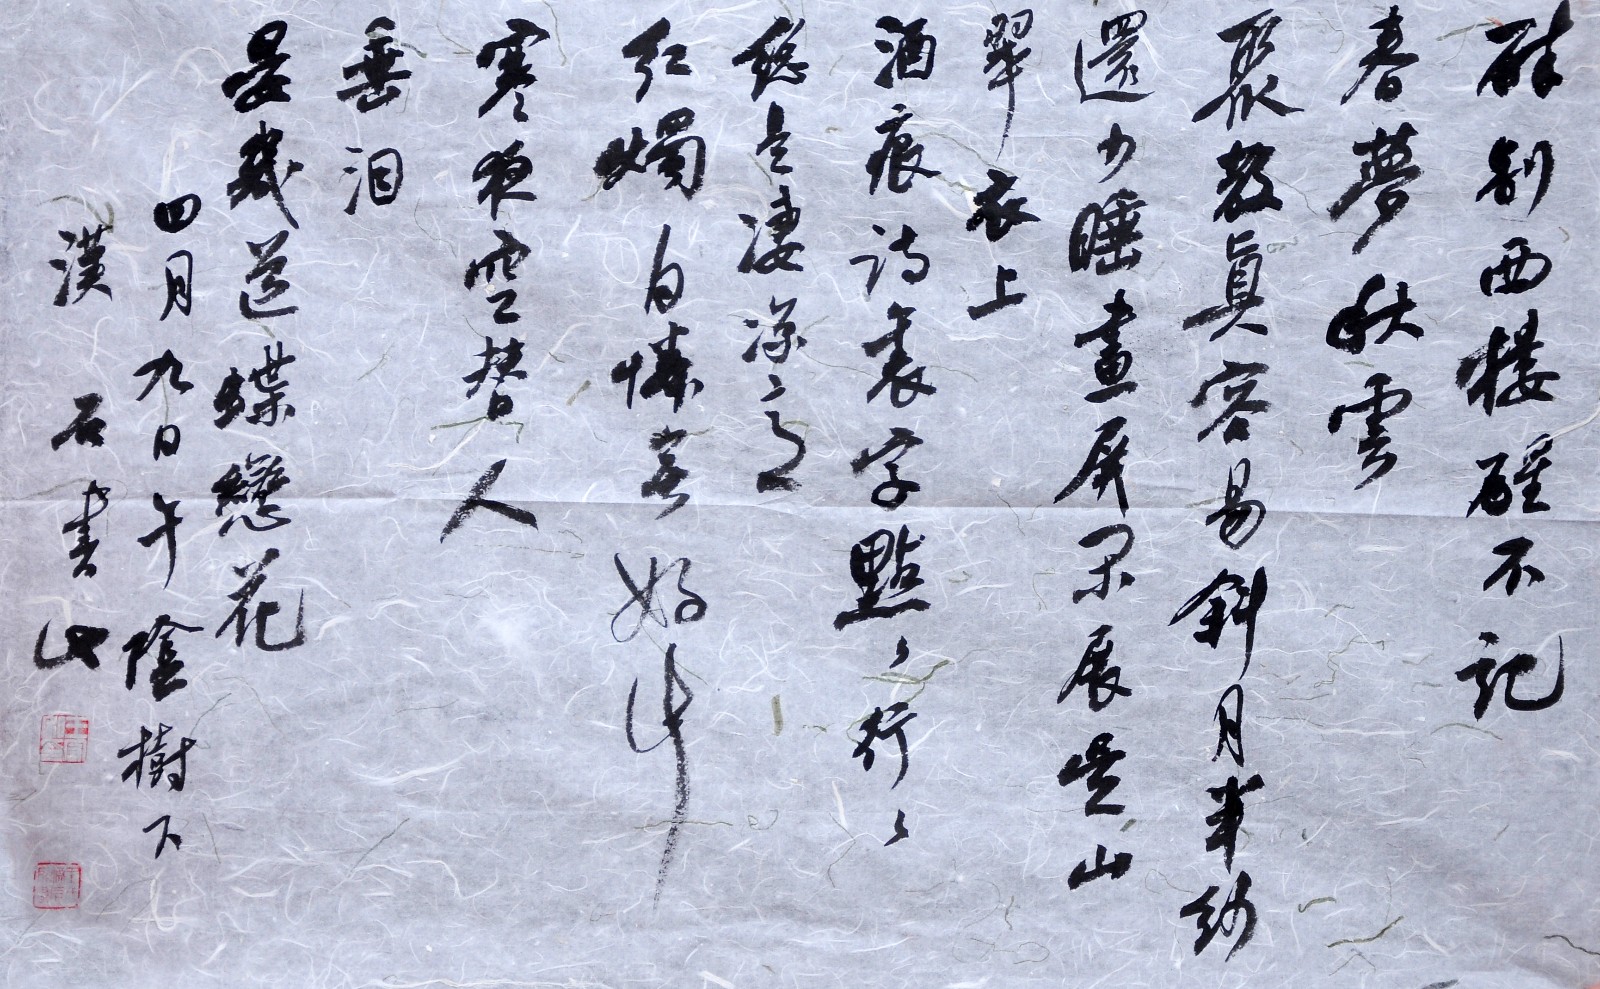 醉别西樓醒不記
春夢秋雲
聚散眞容易斜月半紗
還少睡畫屏閑展吴山
翠衣上
酒痕诗裏字點々行々
總是凄凉意
红燭自憐無好计
寒夜空替人
垂泪
晏幾道蝶戀花
四月九日午陰樹下
漢石書